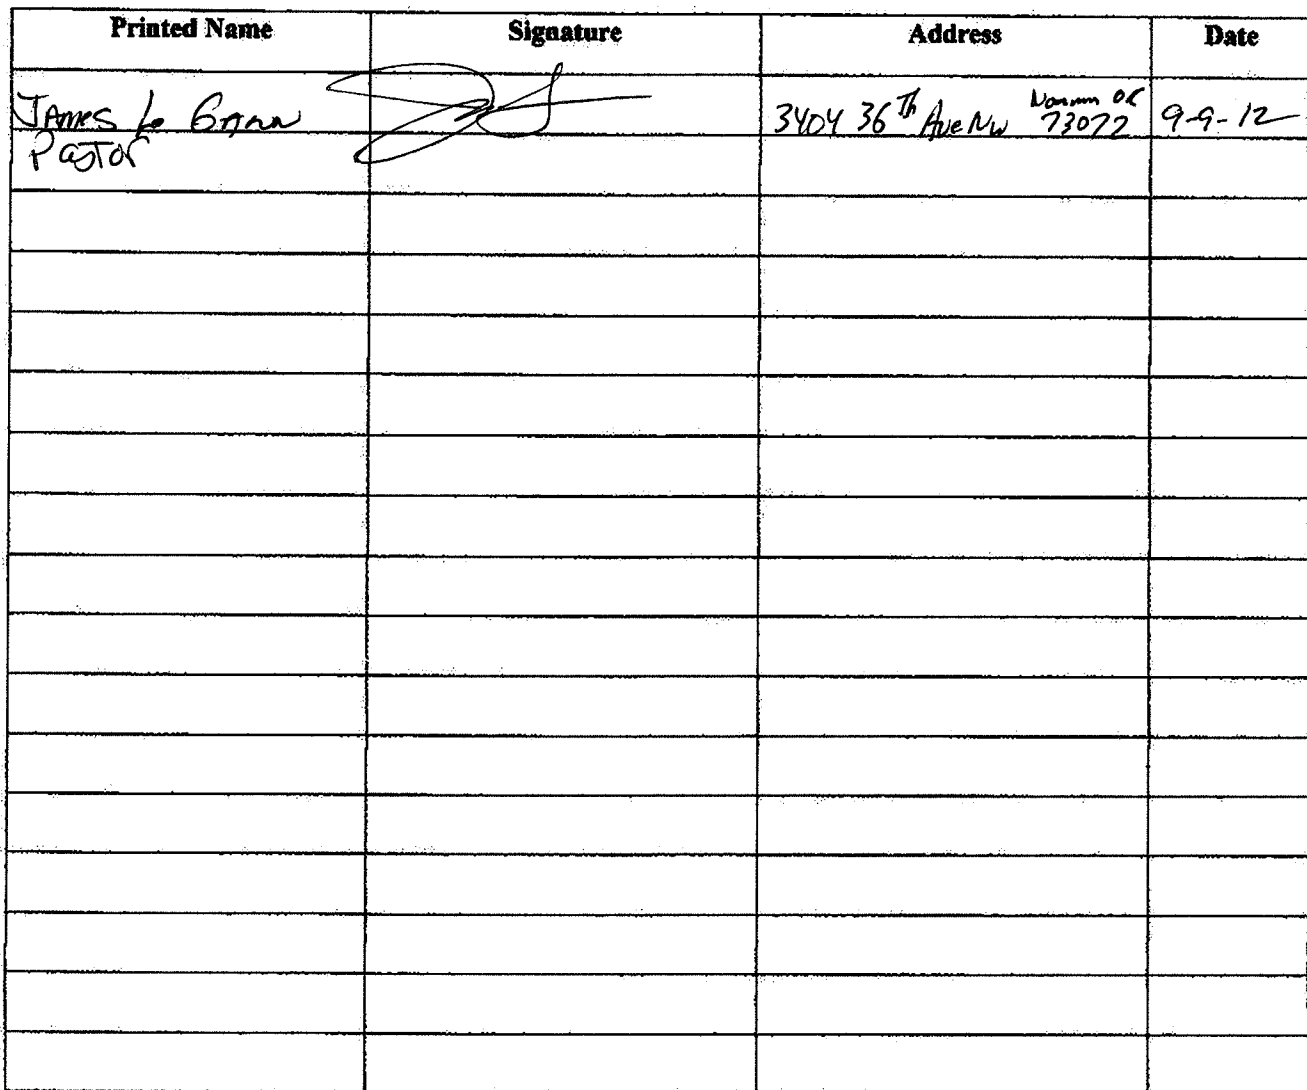 Printed Name Signature Address Date
James Le Gann 3404 36th Ave NW Norman OK 73072 9-9-12
Pastor